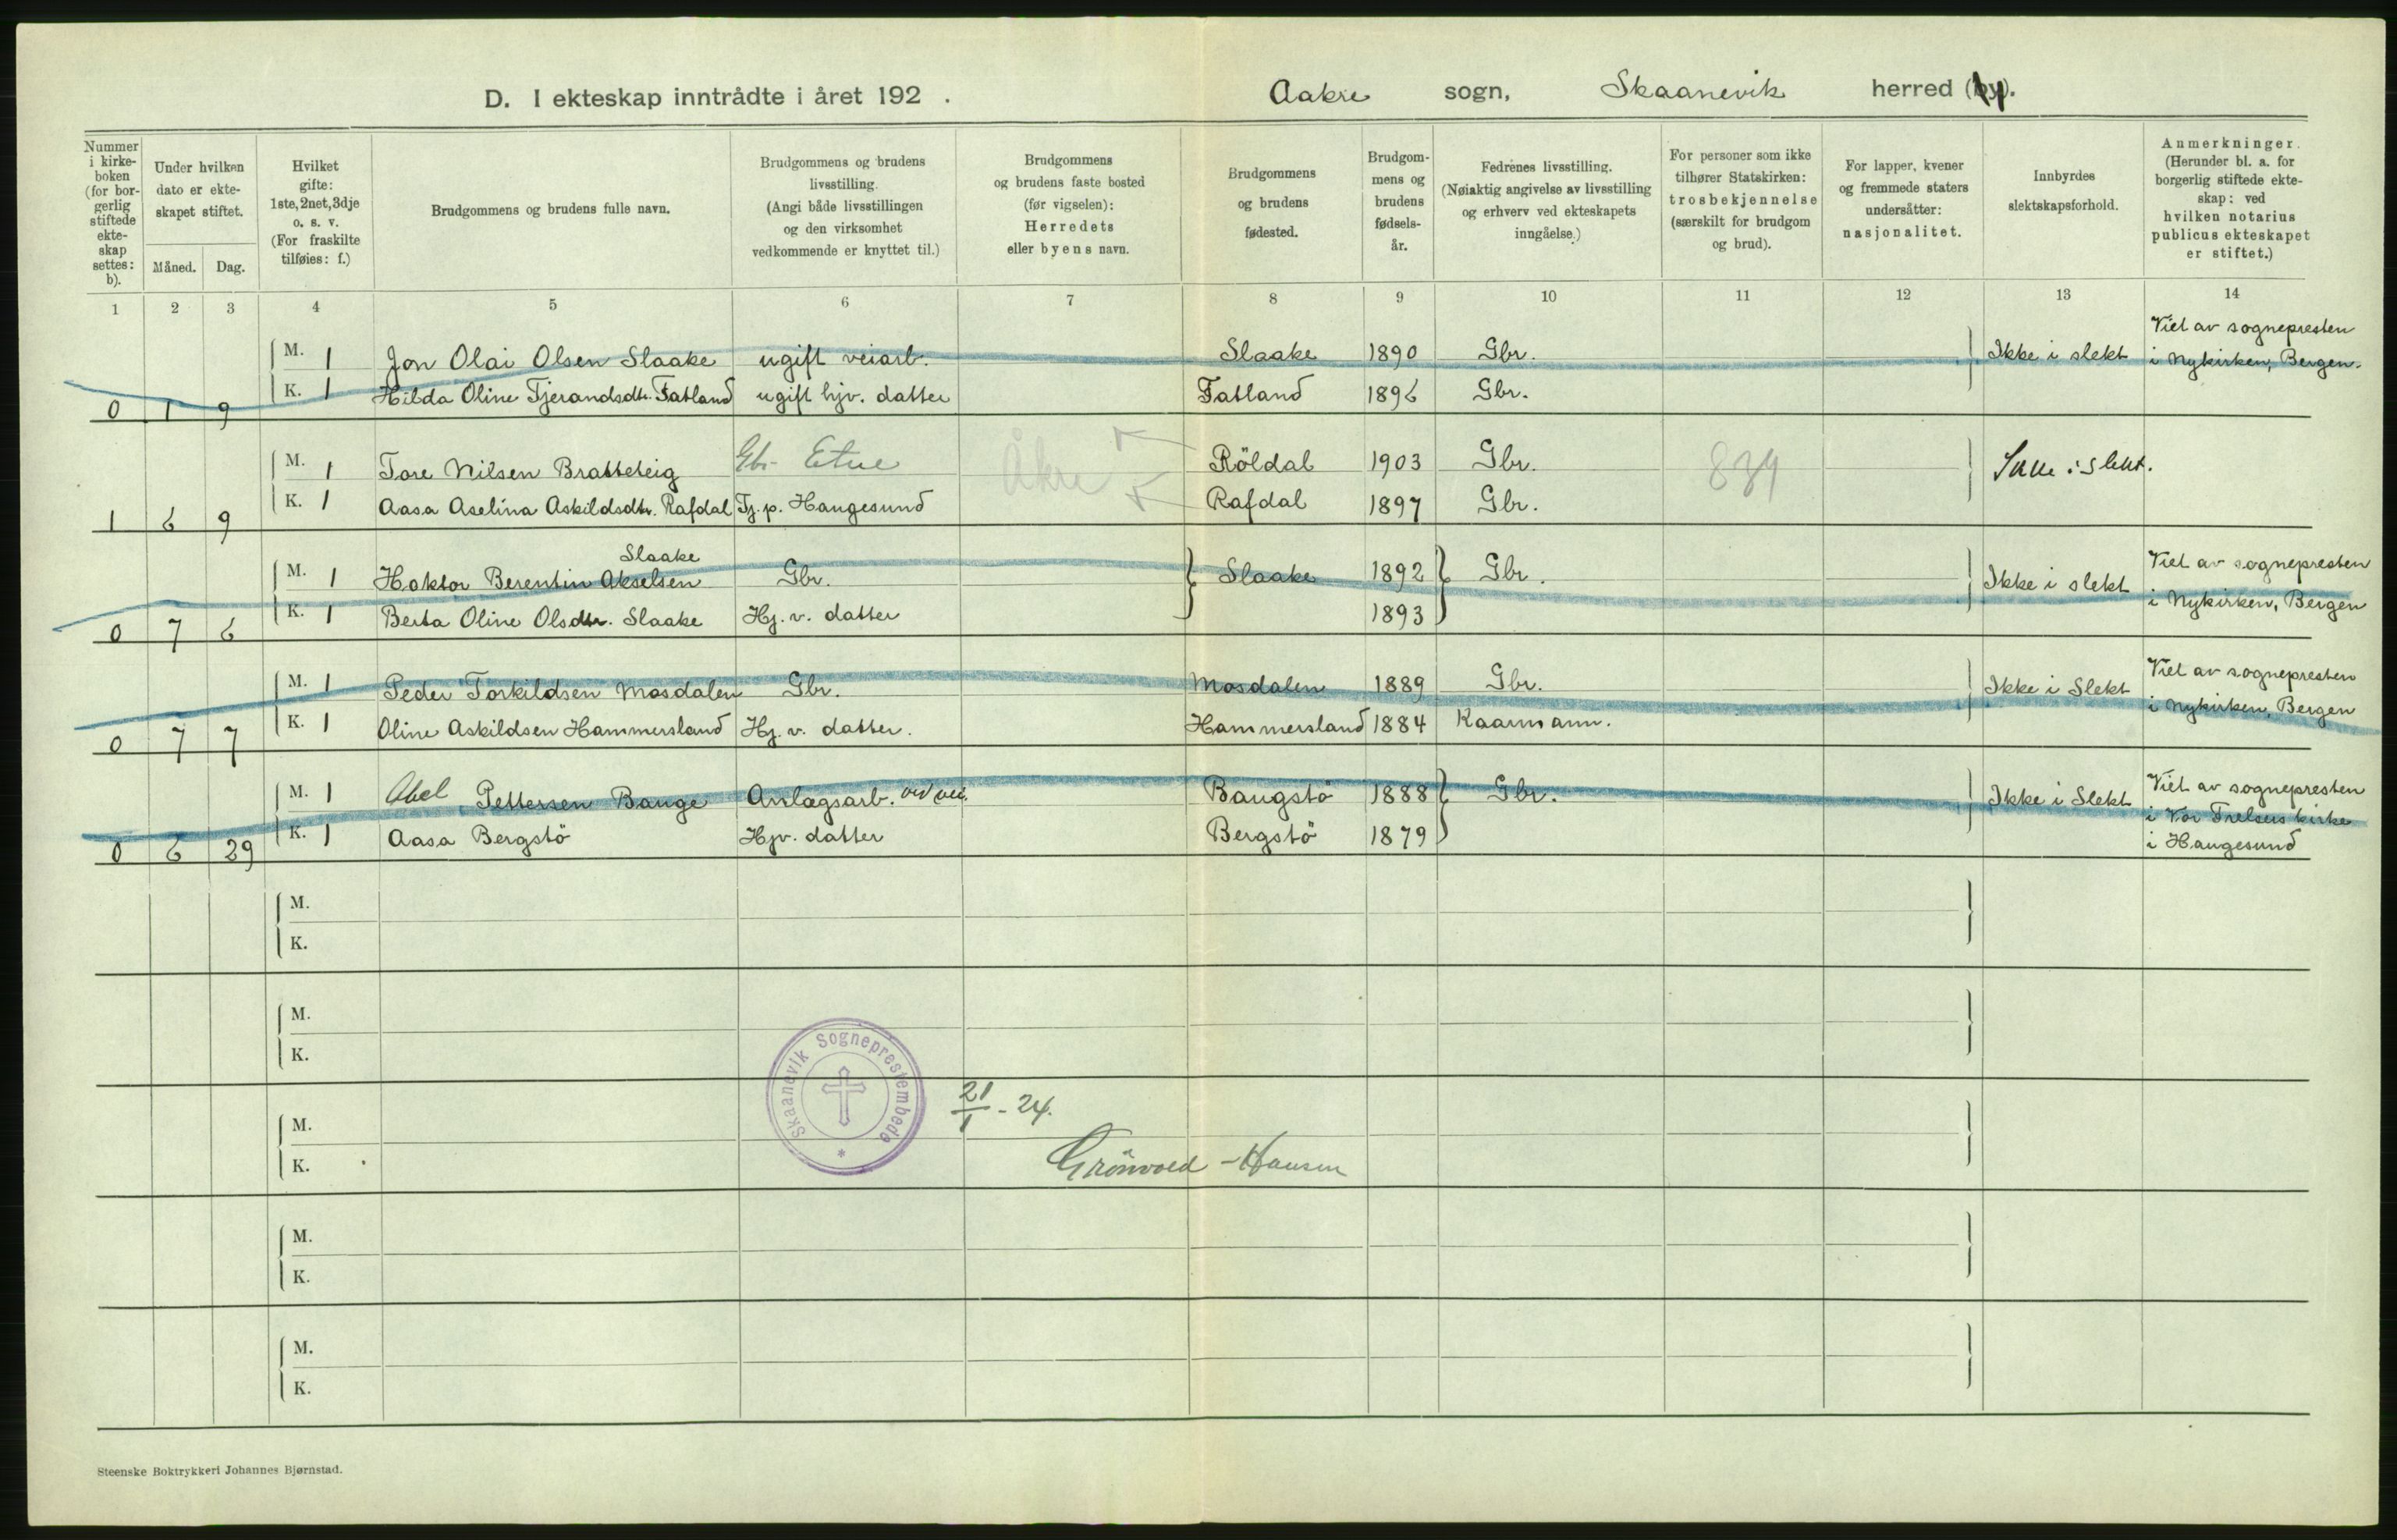 D. I ekteskap inntrådte i året 192 . Aakre sogn, Skaanevik herred (by).
Nummer i kirke-boken (for bor-gerlig stiftede ekte-skap settes: b).
Under hvilken dato er ekte-skapet stiftet.
Måned. Dag.
Hvilket gifte: 1ste, 2net, 3dje o. s. v. (For fraskilte tilføies: f.)
Brudgommens og brudens fulle navn.
Brudgommens og brudens livsstilling. (Angi både livsstillingen og den virksomhet vedkommende er knyttet til.)
Brudgommens og brudens faste bosted (før vigselen): Herredets eller byens navn.
Brudgommens og brudens fødested.
Brudgom-mens og brudens fødsels-år.
Fedrenes livsstilling. (Nøiaktig angivelse av livsstilling og erhverv ved ekteskapets inngåelse.)
For personer som ikke tilhører Statskirken: trosbekjennelse (særskilt for brudgom og brud).
For lapper, kvener og fremmede staters undersåtter: nasjonalitet.
Innbyrdes slektskapsforhold.
Anmerkninger. (Herunder bl. a. for borgerlig stiftede ekte-skap: ved hvilken notarius publicus ekteskapet er stiftet.)
1 2 3 4 5 6 7 8 9 10 11 12 13 14
M. 1 Jon Olai Olsen Slaake ugift veiarb. Slaake 1890 Gbr. Ikke i slekt Viet av sognepresten i Nykirken, Bergen.
0 1 9 K. 1 Hilda Oline Tjerandsdtr. Fatland ugift hjv. datter Fatland 1896 Gbr.
M. 1 Tore Nilsen Bratteteig Gbr Etne Åkre Röldal 1903 Gbr. 839 Ikke i slekt.
1 6 9 K. 1 Aasa Aselina Askildsdtr. Rafdal Tj. p. Haugesund Rafdal 1897 Gbr.
Slaake
M. 1 Haktor Berentin Akselsen Gbr. Slaake 1892 Gbr. Ikke i slekt Viet av sognepresten i Nykirken, Bergen
0 7 6 K. 1 Berta Oline Olsdtr. Slaake Hj. v. datter 1893
M. 1 Peder Torkildsen Mosdalen Gbr. Mosdalen 1889 Gbr. Ikke i Slekt Viet av sognepresten i Nykirken, Bergen
0 7 7 K. 1 Oline Askildsen Hammersland Hj. v. datter. Hammersland 1884 Kaarmann.
M. 1 Abel Pettersen Bauge Anlægsarb. Baugstö 1888 Gbr. Ikke i Slekt Viet av sognepresten i Vor Frelsers kirke i Haugesund
0 6 29 K. 1 Aasa Bergstö Hjv. datter Bergstö 1879
M.
K.
M.
K.
Skaanevik Sogneprestembede
21/1 - 24.
M.
K.
Grönvold - Hansen
M.
K.
M.
K.
Steenske Boktrykkeri Johannes Bjørnstad.